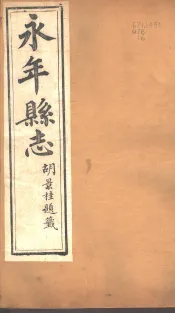 永年縣志
胡景桂題籤